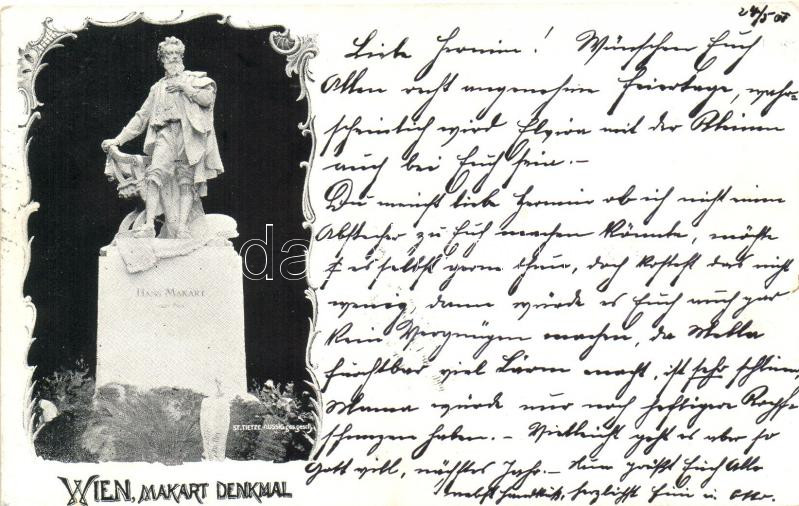 24/5 08
Liebe Hermin! Wünschen Euch
Allen recht angenehme Feiertage, wahr-
scheinlich wird Elvira mit der Kleinen
auch bei Euch sein. -
Du meinst liebe Hermin ob ich nicht einen
Abstecher zu Euch machen könnte, möchte
es selbst gerne thun, doch kostest das nicht
wenig, dann würde es Euch auch gar
kein Vergnügen machen, da Mella
furchtbar viel Lärm macht, ist sehr schlimm,
Mama würde nur noch heftigere Kopf-
schmerzen haben. - Vielleicht geht es aber so
Gott will, nächstes Jahr. - Nun grüßt Euch Alle
nebst Handkuß, herzlichst
HANS MAKART
ST. TIETZE-AUSSIG. ges. gesch.
WIEN, MAKART DENKMAL
da